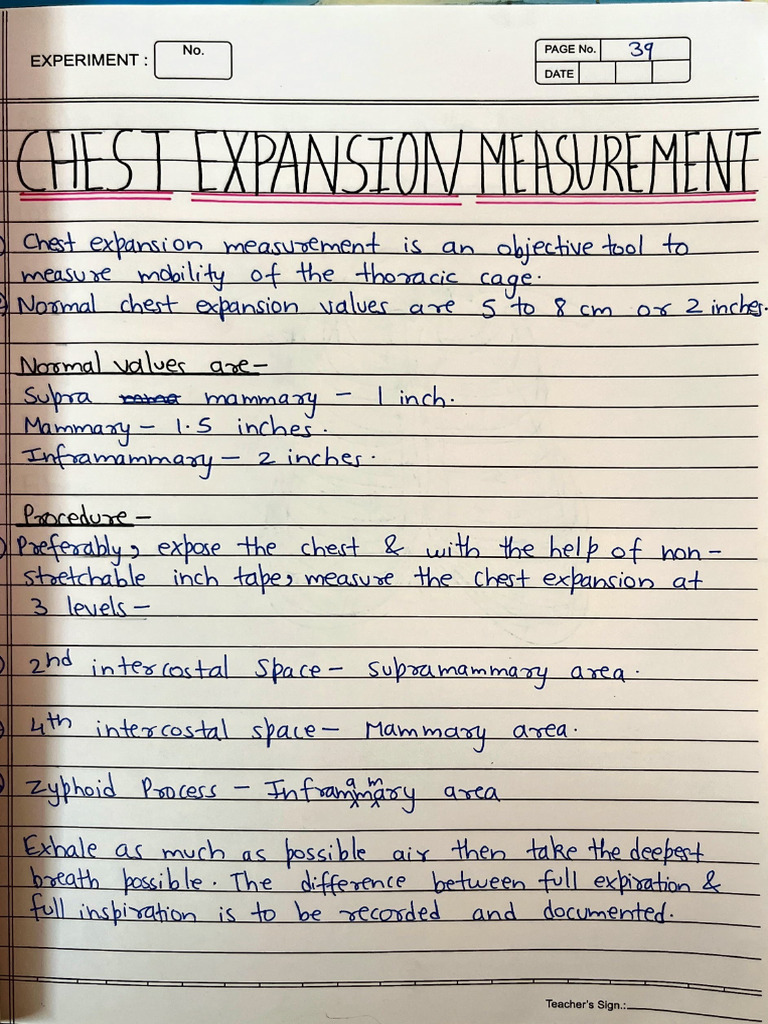 EXPERIMENT : No.
PAGE No. 39
DATE
CHEST EXPANSION MEASUREMENT
Chest expansion measurement is an objective tool to
measure mobility of the thoracic cage.
Normal chest expansion values are 5 to 8 cm or 2 inches.
Normal values are-
Supra mammary - 1 inch.
Mammary - 1.5 inches.
Inframammary - 2 inches.
Procedure -
Preferably, expose the chest & with the help of non-
stretchable inch tape, measure the chest expansion at
3 levels -
2nd intercostal Space - supramammary area.
4th intercostal space - Mammary area.
Zyphoid Process - Inframammary area
Exhale as much as possible air then take the deepest
breath possible. The difference between full expiration &
full inspiration is to be recorded and documented.
Teacher's Sign.: